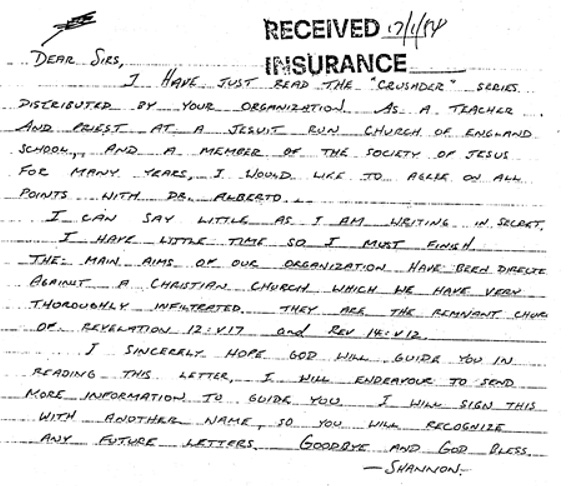 RECEIVED 17/1/84
INSURANCE
DEAR SIRS,
I HAVE JUST READ THE "CRUSADER" SERIES
DISTRIBUTED BY YOUR ORGANIZATION. AS A TEACHER
AND PRIEST AT A JESUIT RUN CHURCH OF ENGLAND
SCHOOL, AND A MEMBER OF THE SOCIETY OF JESUS
FOR MANY YEARS, I WOULD LIKE TO AGREE ON ALL
POINTS WITH DR. ALBERTO.
I CAN SAY LITTLE AS I AM WRITING IN SECRET.
I HAVE LITTLE TIME SO I MUST FINISH
THE MAIN AIMS OF OUR ORGANIZATION HAVE BEEN DIRECTE
AGAINST A CHRISTIAN CHURCH WHICH WE HAVE VERY
THOROUGHLY INFILTRATED. THEY ARE THE REMNANT CHUR
OF REVELATION 12:V17 and REV 14:V12.
I SINCERELY HOPE GOD WILL GUIDE YOU IN
READING THIS LETTER, I WILL ENDEAVOUR TO SEND
MORE INFORMATION TO GUIDE YOU. I WILL SIGN THIS
WITH ANOTHER NAME, SO YOU WILL RECOGNIZE
ANY FUTURE LETTERS. GOODBYE AND GOD BLESS.
—SHANNON—